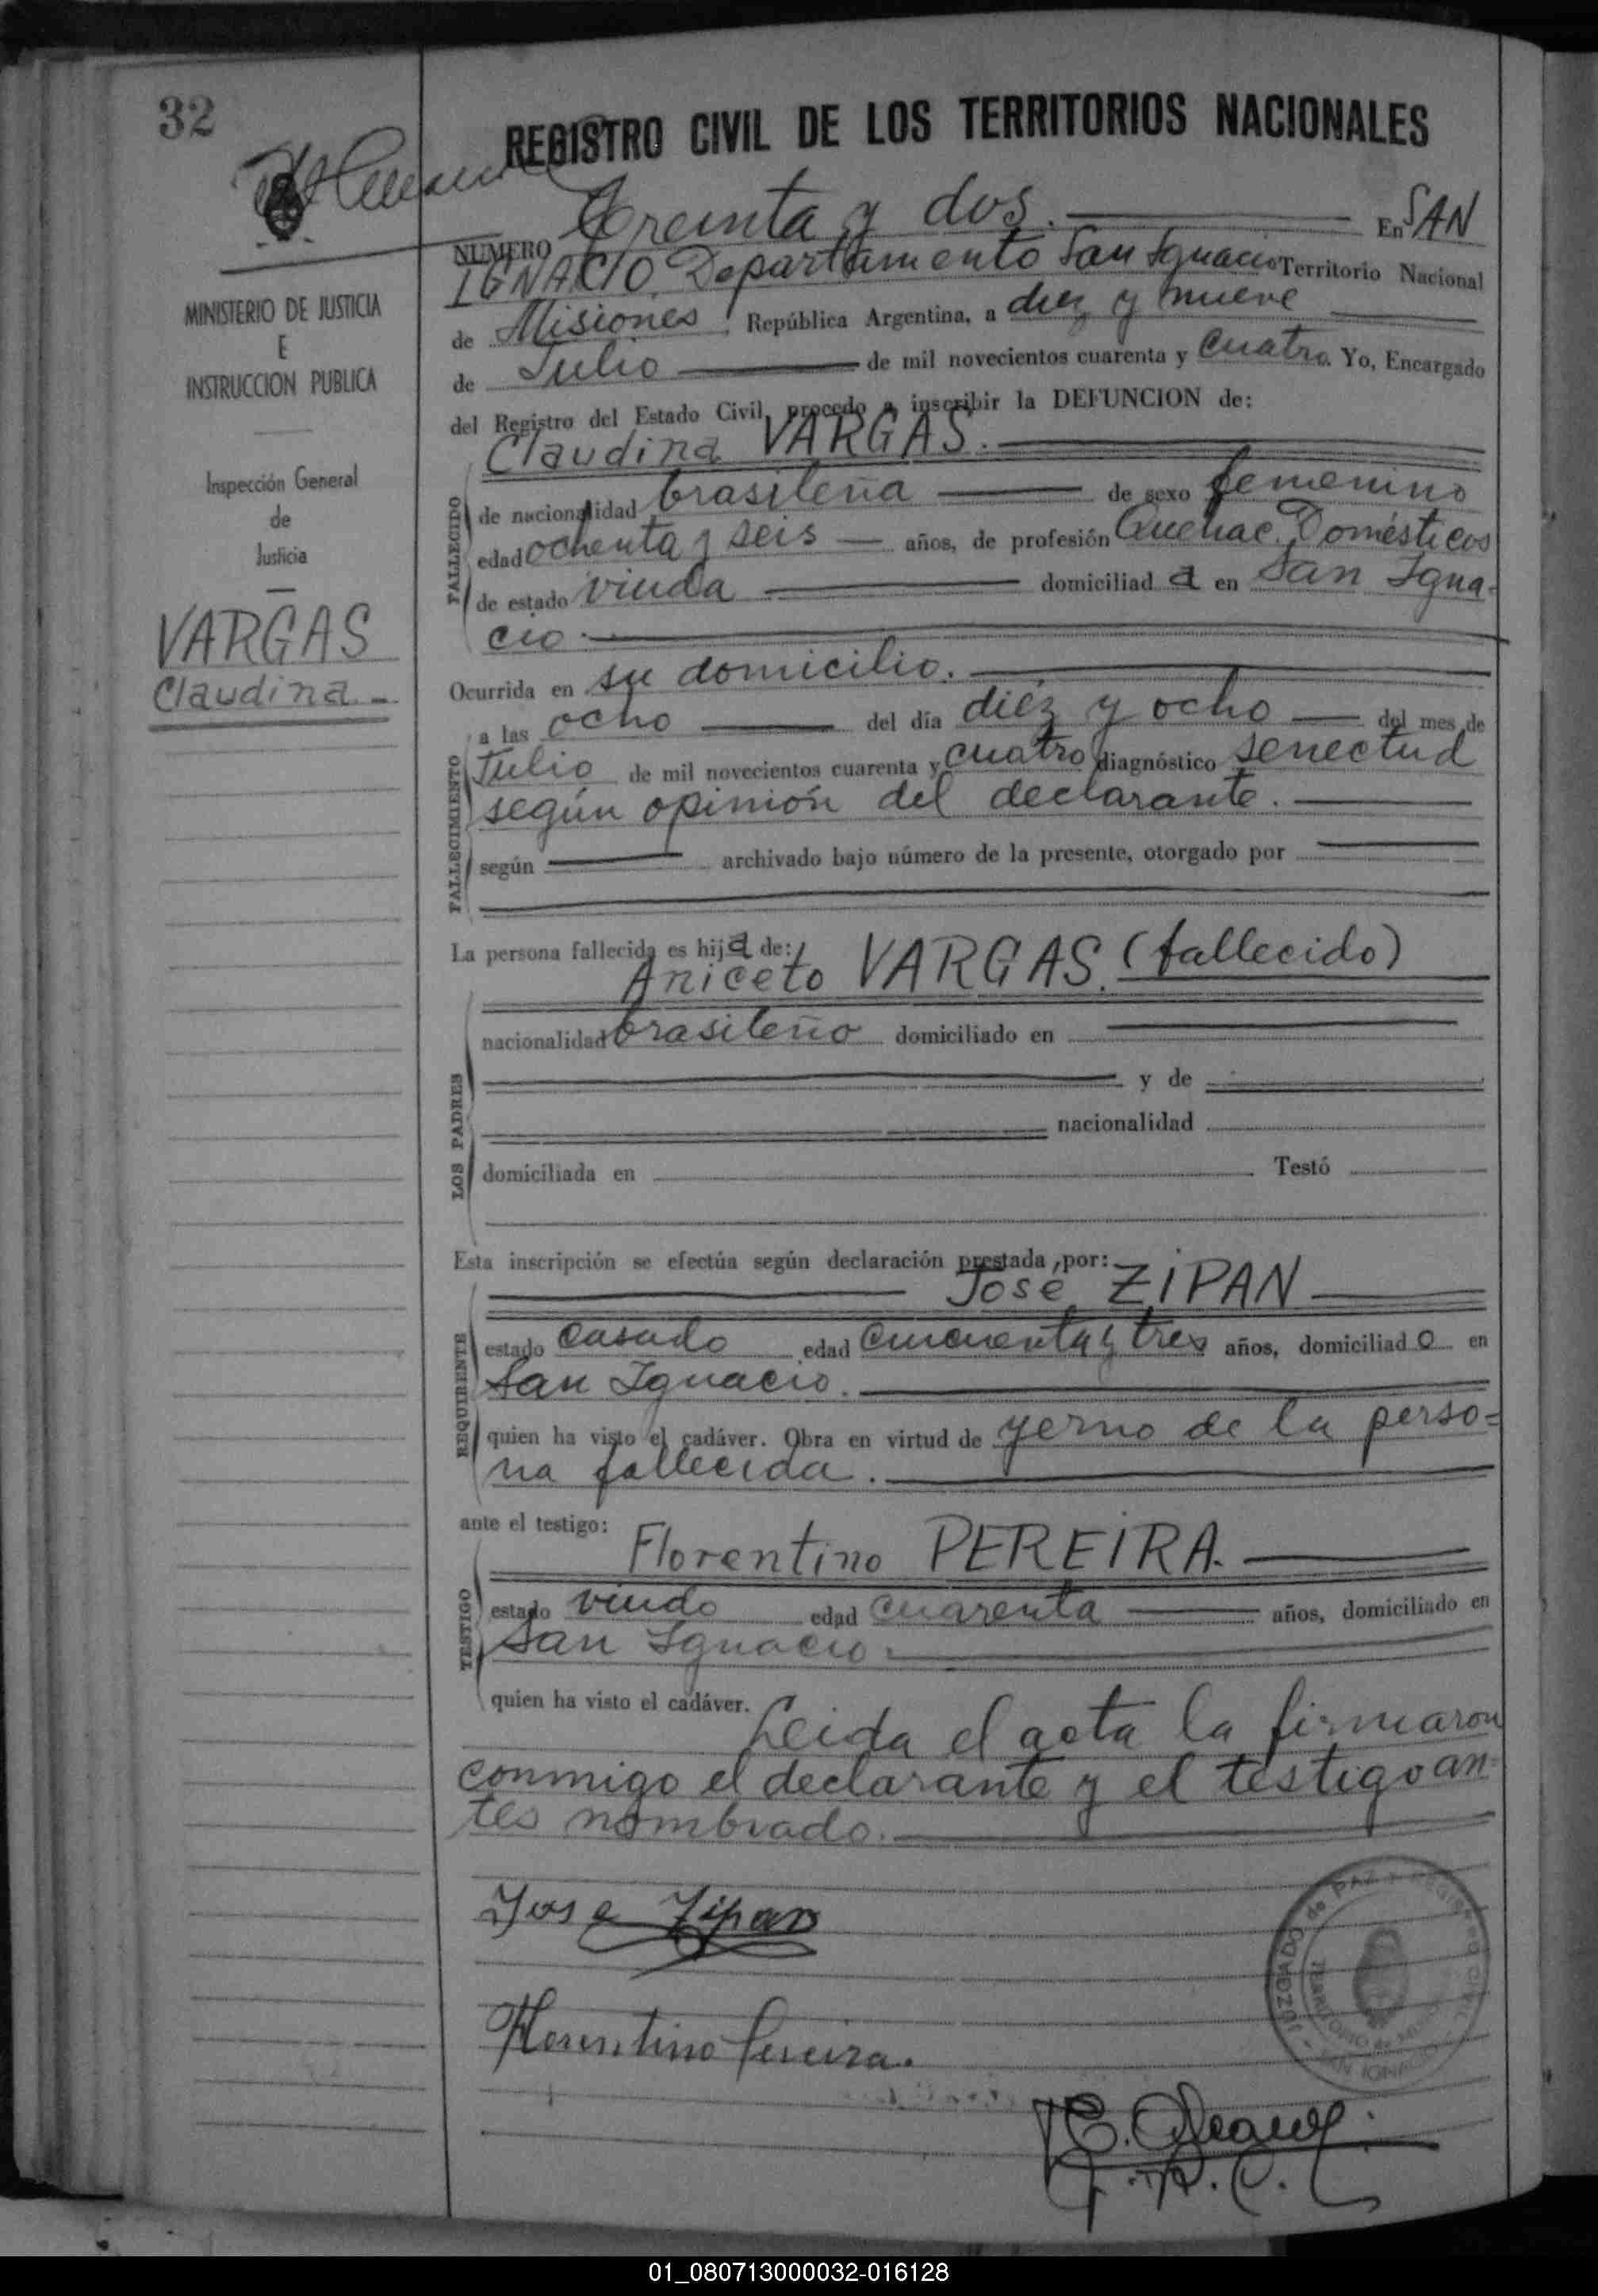 32
REGISTRO CIVIL DE LOS TERRITORIOS NACIONALES
NUMERO Treinta y dos. En SAN
IGNACIO. Departamento San Ignacio Territorio Nacional
de Misiones, República Argentina, a diez y nueve
de Julio de mil novecientos cuarenta y cuatro. Yo, Encargado
del Registro del Estado Civil, procedo a inscribir la DEFUNCION de:
Claudina VARGAS.
FALLECIDO
de nacionalidad brasileña de sexo femenino
edad ochenta y seis años, de profesión Quehac. Domésticos
de estado viuda domiciliad a en San Igna-
cio.
MINISTERIO DE JUSTICIA
E
INSTRUCCION PUBLICA
Inspección General
de
Justicia
VARGAS
Claudina.-
Ocurrida en su domicilio.
FALLECIMIENTO
a las ocho del día diéz y ocho del mes de
Julio de mil novecientos cuarenta y cuatro diagnóstico senectud
según opinión del declarante.
según archivado bajo número de la presente, otorgado por
La persona fallecida es hija de:
Aniceto VARGAS. (fallecido)
LOS PADRES
nacionalidad brasileño domiciliado en
y de
nacionalidad
domiciliada en Testó
Esta inscripción se efectúa según declaración prestada por:
José ZIPAN
REQUIRENTE
estado casado edad cincuenta y tres años, domiciliad o en
San Ignacio.
quien ha visto el cadáver. Obra en virtud de yerno de la perso=
na fallecida.
ante el testigo:
Florentino PEREIRA.
TESTIGO
estado viudo edad cuarenta años, domiciliado en
San Ignacio.
quien ha visto el cadáver. Leida el acta la firmaron
conmigo el declarante y el testigo an-
tes nombrado.
Jose Zipan
Florentino Pereira.
JUZGADO de PAZ y REGISTRO CIVIL
TERRITORIO de MISIONES
SAN IGNACIO
01_080713000032-016128